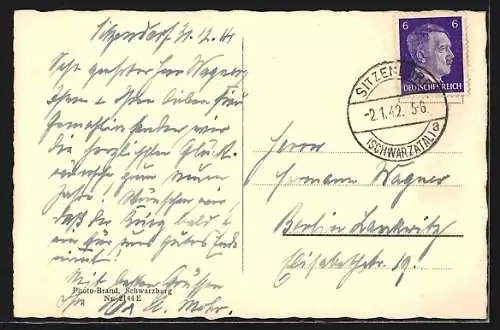 Sitzendorf 31.12.41
Sehr geehrter Herr Wagner,
Ihnen u. Ihrer lieben Frau
Gemahlin senden wir
die herzlichsten Glück-
wünsche zum neuen
Jahre! Wünschen wir
daß der Krieg bald
ein für uns gutes Ende
nimmt!
Mit besten Grüssen
Ihre Mohr.
Photo-Brand, Schwarzburg
No. 2144 E
6 6
DEUTSCHES REICH
SITZEN
-2.1.42. 5-6
(SCHWARZATAL) a
Herrn
Hermann Wagner
Berlin Lankwitz
Elisabethstr. 19.